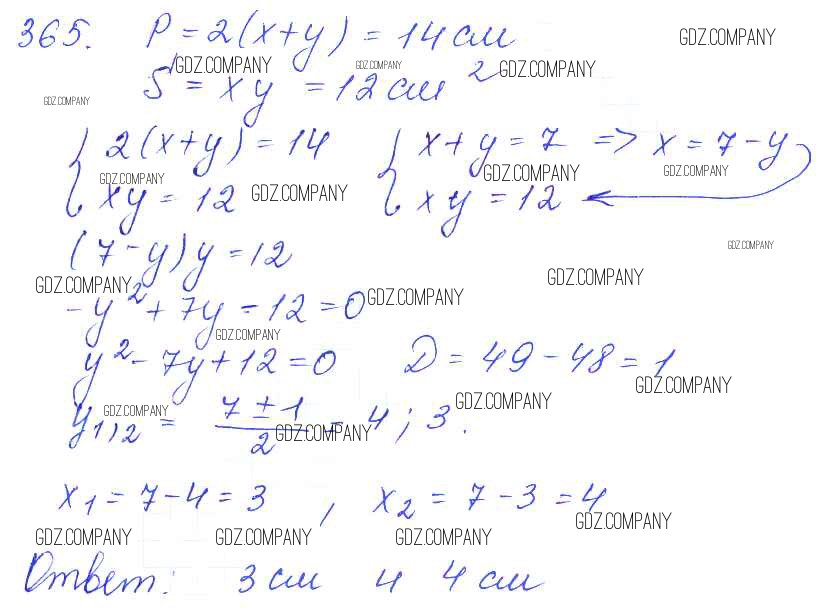 365. P = 2(x+y) = 14 см GDZ.COMPANY
GDZ.COMPANY GDZ.COMPANY GDZ.COMPANY
S = xy = 12 см²
GDZ.COMPANY
{ 2(x+y) = 14 { x + y = 7 => x = 7 - y
GDZ.COMPANY GDZ.COMPANY GDZ.COMPANY
xy = 12 GDZ.COMPANY xy = 12
(7 - y) y = 12 GDZ.COMPANY
GDZ.COMPANY GDZ.COMPANY
- y² + 7y - 12 = 0 GDZ.COMPANY
GDZ.COMPANY
y² - 7y + 12 = 0 D = 49 - 48 = 1
GDZ.COMPANY
y1,2 = (7 ± 1)/2 = 4 ; 3.
GDZ.COMPANY GDZ.COMPANY GDZ.COMPANY
x₁ = 7 - 4 = 3 , x₂ = 7 - 3 = 4
GDZ.COMPANY
GDZ.COMPANY GDZ.COMPANY GDZ.COMPANY
Ответ: 3 см и 4 см